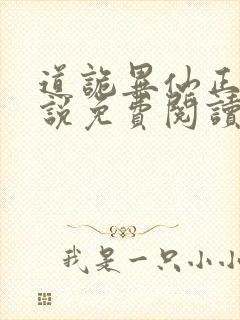 道詭異仙正
說免費閱讀
我是一只小小